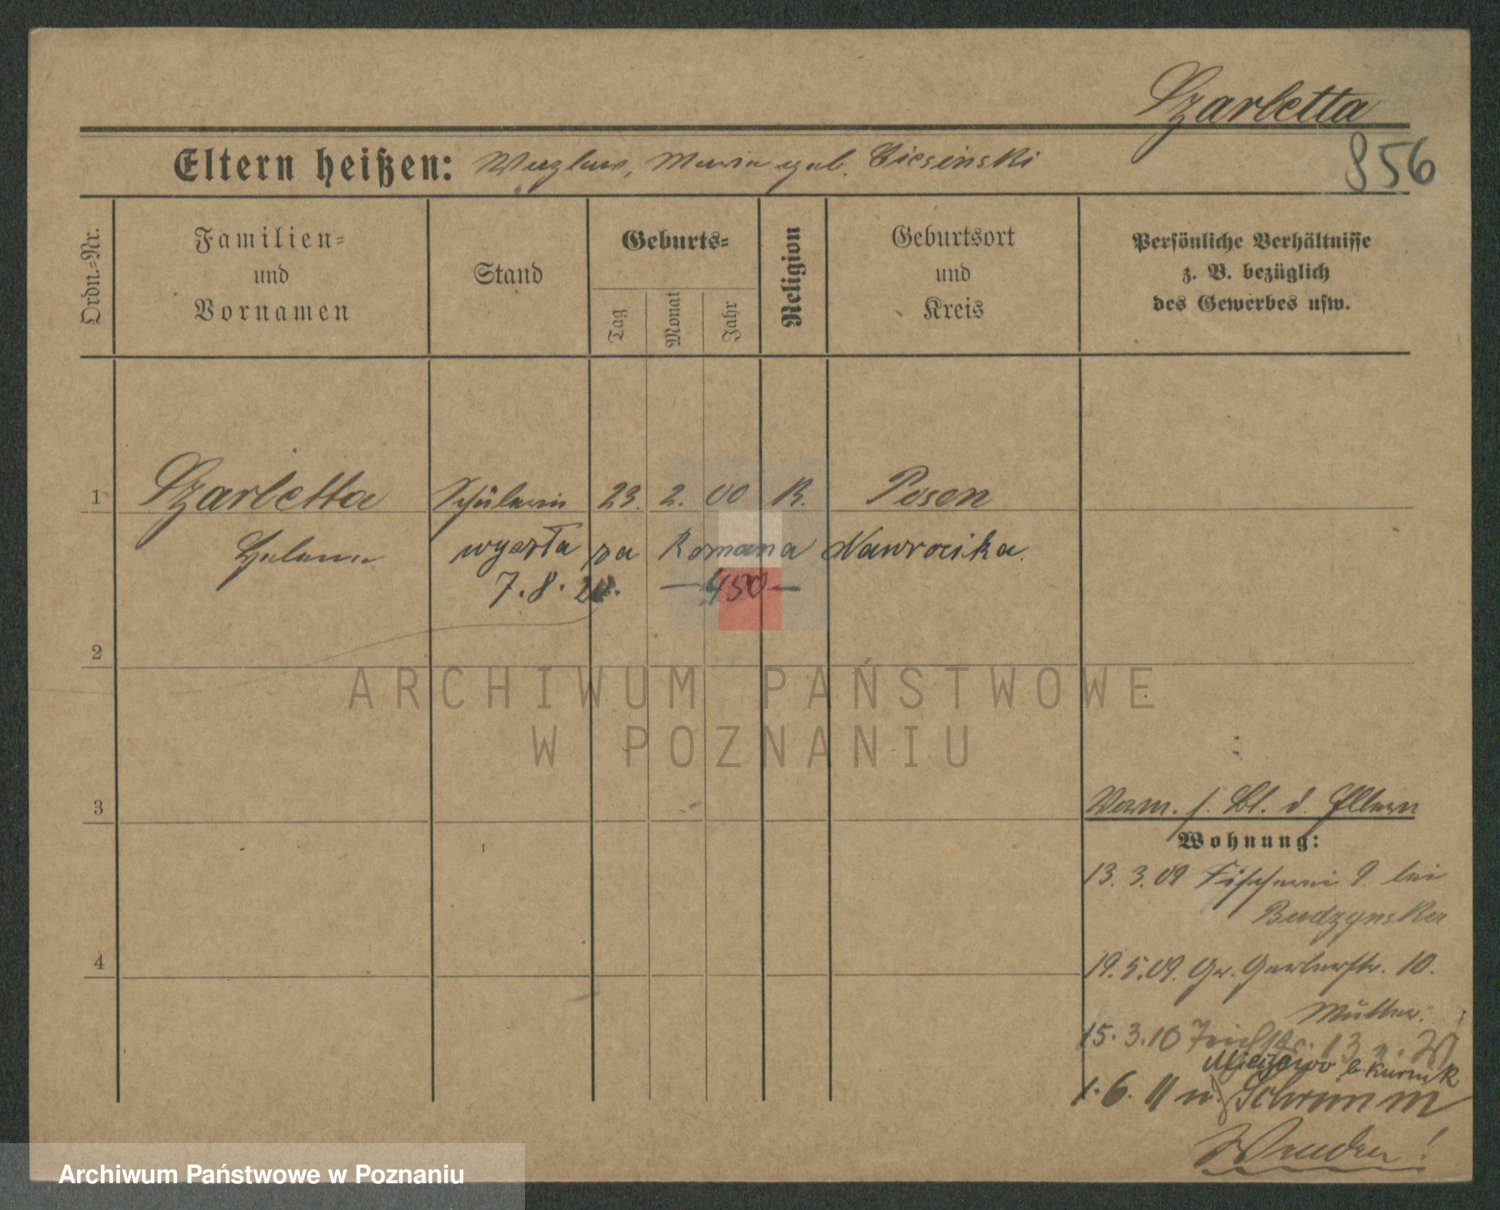 Szarletta
856
Eltern heißen: Wazlaw, Maria geb. Ciesinski
Ordn.-Nr.
Familien-
und
Vornamen
Stand
Geburts-
Tag
Monat
Jahr
Religion
Geburtsort
und
Kreis
Persönliche Verhältnisse
z. B. bezüglich
des Gewerbes usw.
1 Szarletta Schülerin 23. 2. 00 R. Posen
Helena wyszła za Romana Nawrocika.
7. 8. —450—
2
ARCHIWUM PAŃSTWOWE
W POZNANIU
3
Verm. s. Bl. d. Eltern
Wohnung:
13. 3. 09 Fischerei 9 bei
Budzynska
4
19. 5. 09. Gr. Gerberstr. 10.
Mutter.
15. 3. 10 Teichstr. 13
b. Kurnik
1. 6. 11 n. Schrimm
Wenden!
Archiwum Państwowe w Poznaniu